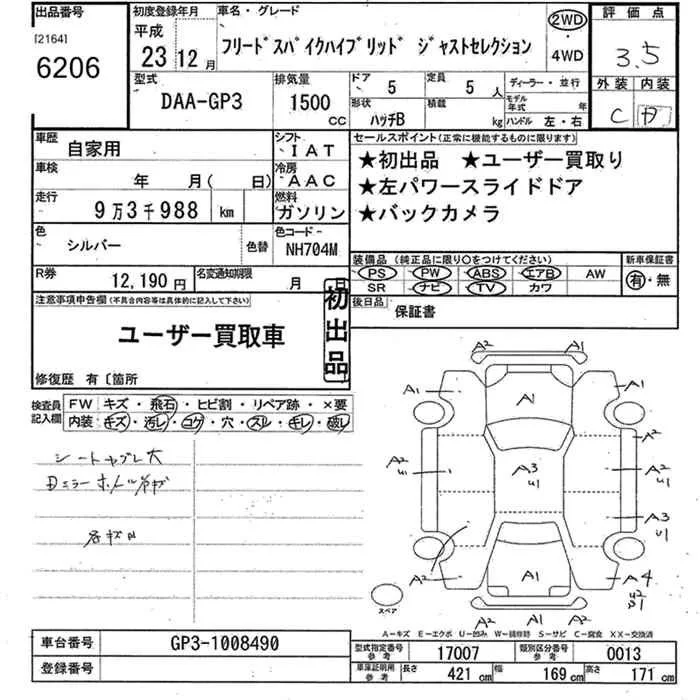 出品番号
[2164]
6206
初度登録年月
平成
23 12 月
車名・グレード
フリードスパイクハイブリッド ジャストセレクション
2WD
4WD
評価点
3.5
外装 内装
C D
型式
DAA-GP3
排気量
1500
CC
ドア
5
定員
5 人
形状
ハッチB
積載
kg
ディーラー・並行
モデル年式 年
ハンドル 左・右
車歴
自家用
シフト
IAT
車検
年 月( 日)
冷房
AAC
走行
9万3千988 km
燃料
ガソリン
色
シルバー
色替
色コード
NH704M
R券
12,190 円
名変通知期限
月 日
セールスポイント(正常に機能するものに限ります)
★初出品 ★ユーザー買取り
★左パワースライドドア
★バックカメラ
装備品 (純正品に限り○をつけてください)
PS PW ABS エアB AW
SR ナビ TV カワ
新車保証書
有・無
後日品
保証書
注意事項申告欄(不具合内容等は具体的に記入して下さい)
ユーザー買取車
初出品
修復歴 有〔箇所
検査員記入欄
FW キズ・飛石・ヒビ割・リペア跡・×要
内装 キズ・汚レ・コゲ・穴・スレ・キレ・破レ
シートヤブレ大
A2 A1
A1 A1 A1
A2
A2 U1 A3 U1 A2 U1
A3 U1
A2 A1 A4
U2
A2 A1 A2
スペア
A-キズ E-エクボ U-凹み W-補修跡 S-サビ C-腐食 XX-交換済
車台番号
GP3-1008490
登録番号
型式指定番号 参考
17007
類別区分番号 参考
0013
車庫証明用 参考
長さ 421 cm 幅 169 cm 高さ 171 cm